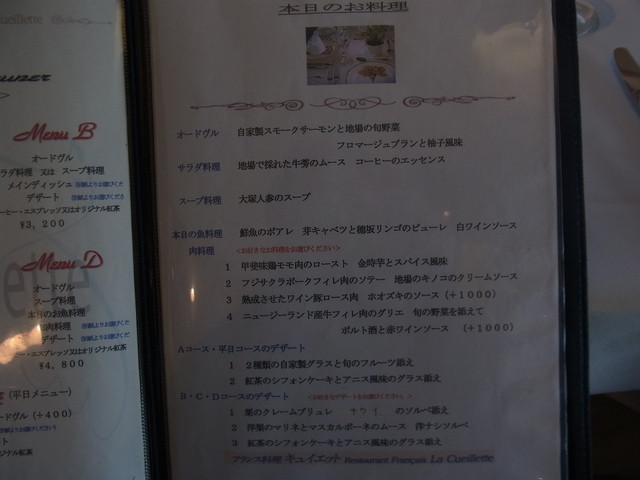 Cueillette
Menu B
オードヴル
サラダ料理 又は スープ料理
メインディッシュ
デザート
¥3,200
Menu D
オードヴル
スープ料理
本日のお魚料理
お肉料理
デザート
¥4,800
(平日メニュー)
ードヴル(+400)
本日のお料理
オードヴル 自家製スモークサーモンと地場の旬野菜
フロマージュブランと柚子風味
サラダ料理 地場で採れた牛蒡のムース コーヒーのエッセンス
スープ料理 大塚人参のスープ
本日の魚料理 鮮魚のポアレ 芽キャベツと穂坂リンゴのピューレ 白ワインソース
肉料理 <お好きなお料理をお選びください>
1 甲斐味鶏モモ肉のロースト 金時芋とスパイス風味
2 フジザクラポークフィレ肉のソテー 地場のキノコのクリームソース
3 熟成させたワイン豚ロース肉 ホオズキのソース(+1000)
4 ニュージーランド産牛フィレ肉のグリエ 旬の野菜を添えて
ポルト酒と赤ワインソース (+1000)
Aコース・平日コースのデザート
1 2種類の自家製グラスと旬のフルーツ添え
2 紅茶のシフォンケーキとアニス風味のグラス添え
B・C・Dコースのデザート <お好きなデザートをお選びください。>
1 栗のクレームブリュレ のソルベ添え
2 洋梨のマリネとマスカルポーネのムース 洋ナシソルベ
3 紅茶のシフォンケーキとアニス風味のグラス添え
フランス料理 キュイエット Restaurant Français La Cueillette